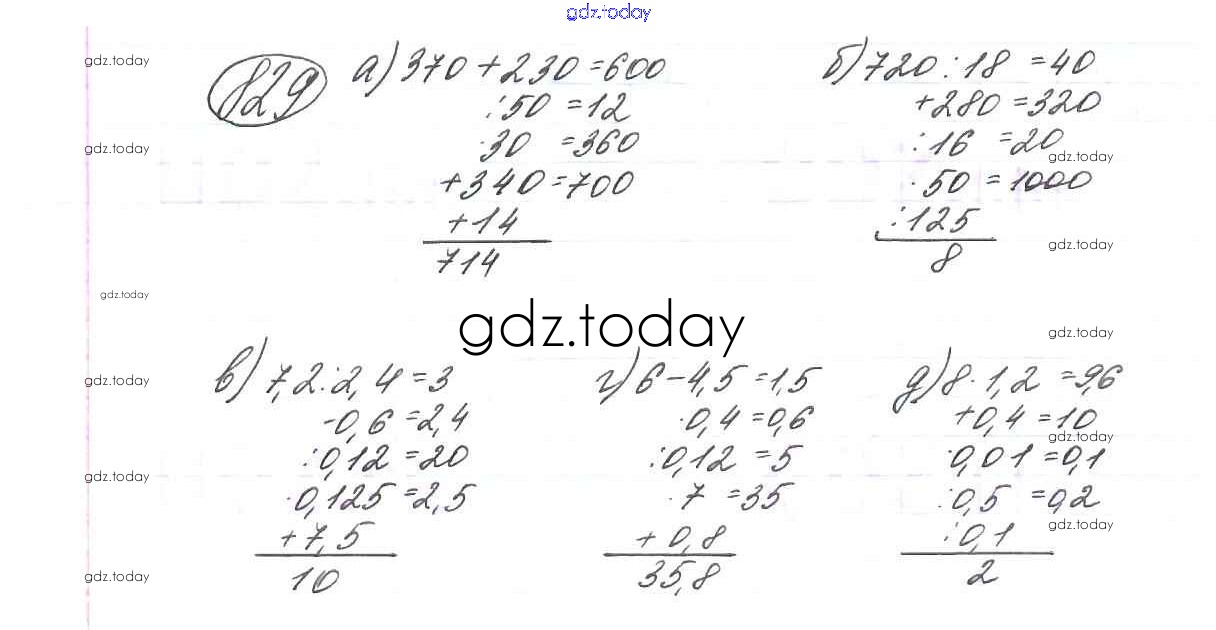 gdz.today
829
а) 370 + 230 = 600
: 50 = 12
· 30 = 360
+ 340 = 700
+ 14
714
б) 720 : 18 = 40
+ 280 = 320
: 16 = 20
· 50 = 1000
: 125
8
в) 7,2 : 2,4 = 3
- 0,6 = 2,4
: 0,12 = 20
· 0,125 = 2,5
+ 7,5
10
г) 6 - 4,5 = 1,5
· 0,4 = 0,6
: 0,12 = 5
· 7 = 35
+ 0,8
35,8
д) 8 · 1,2 = 9,6
+ 0,4 = 10
· 0,01 = 0,1
: 0,5 = 0,2
: 0,1
2
gdz.today
gdz.today
gdz.today
gdz.today
gdz.today
gdz.today
gdz.today
gdz.today
gdz.today
gdz.today
gdz.today
gdz.today